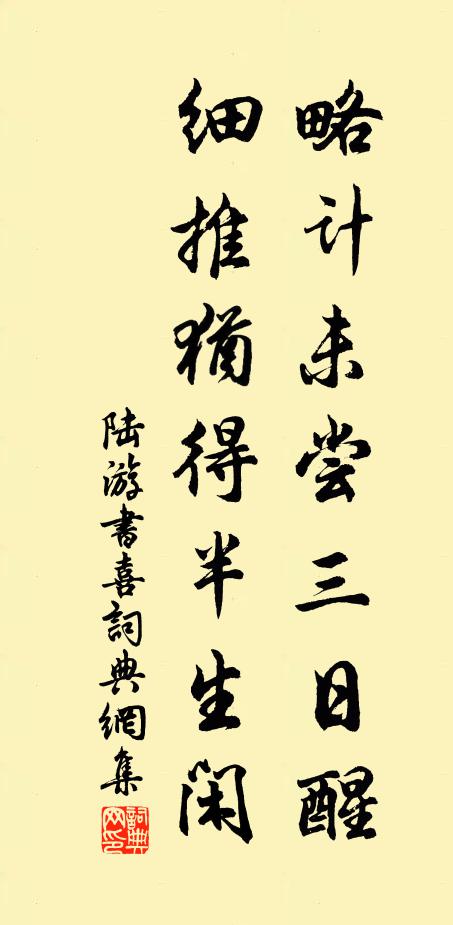 略计未尝三日醒
细推犹得半生闲
陆游书喜詞典網集
詞典网印